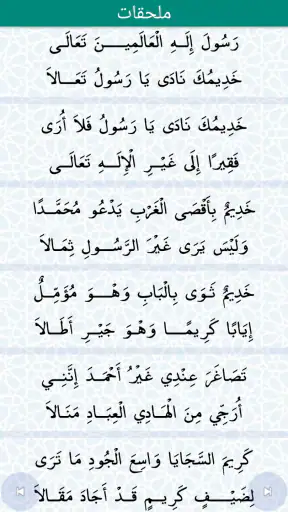 ملحقات
رَسُولَ إِلَـهِ الْعَالَمِيـــنَ تَعَالَـى
خَدِيمُكَ نَادَى يَا رَسُولُ تَعَـــالاَ
خَدِيمُكَ نَادَى يَا رَسُولُ فَلاَ أُرَى
فَقِيرًا إِلَى غَيْـرِ الْإِلَــهِ تَعَالَــى
خَدِيمٌ بِأَقْصَى الْغَرْبِ يَدْعُو مُحَمَّــدًا
وَلَيْسَ يَرَى غَيْرَ الرَّسُــولِ ثِمَـالاَ
خَدِيمٌ ثَـوَى بِالْبَابِ وَهْــوَ مُؤَمِّـلٌ
إِيَابًا كَرِيمًــا وَهْوَ جَيْــرِ أَطَــالاَ
تَصَاغَرَ عِنْدِي غَيْرُ أَحْمَـدَ إِنَّنِــي
أُرَجِّي مِنَ الْهَـادِي الْعِبَـادِ مَنَـالاَ
كَرِيمَ السَّجَايَا وَاسِعَ الْجُودِ مَا تَرَى
لِضَيْــفٍ كَرِيــمٍ قَــدْ أَجَادَ مَقَــالاَ